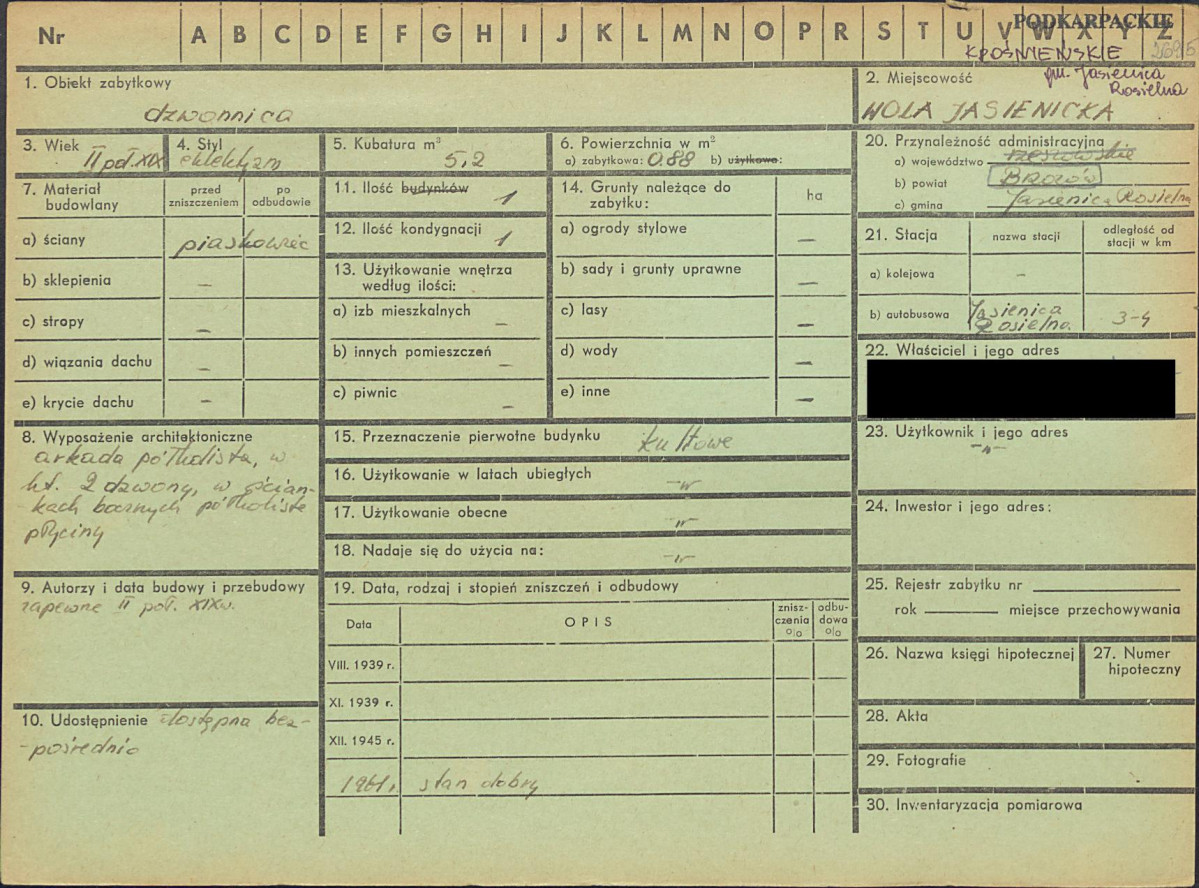 Nr A B C D E F G H I J K L M N O P R S T U V W X Y Z
PODKARPACKIE
KROŚNIEŃSKIE
gm. Jasienica
Rosielna
1. Obiekt zabytkowy
dzwonnica
2. Miejscowość
WOLA JASIENICKA
3. Wiek
II poł. XIX
4. Styl
eklektyzm
5. Kubatura m³
5,2
6. Powierzchnia w m²
a) zabytkowa: 0.88 b) użytkowa:
7. Materiał budowlany
przed zniszczeniem
po odbudowie
a) ściany piaskowiec
b) sklepienia –
c) stropy –
d) wiązania dachu –
e) krycie dachu –
11. Ilość budynków 1
12. Ilość kondygnacji 1
13. Użytkowanie wnętrza
według ilości:
a) izb mieszkalnych –
b) innych pomieszczeń –
c) piwnic –
14. Grunty należące do
zabytku:
ha
a) ogrody stylowe –
b) sady i grunty uprawne –
c) lasy –
d) wody –
e) inne –
20. Przynależność administracyjna
a) województwo rzeszowskie
b) powiat Brzozów
c) gmina Jasienica Rosielna
21. Stacja
nazwa stacji
odległość od
stacji w km
a) kolejowa –
b) autobusowa Jasienica
Rosielna 3-4
22. Właściciel i jego adres
8. Wyposażenie architektoniczne
arkada półkolista, w
kt. 2 dzwony, w ścian-
kach bocznych półkoliste
płyciny
9. Autorzy i data budowy i przebudowy
zapewne II poł. XIXw.
10. Udostępnienie dostępna bez-
-pośrednio
15. Przeznaczenie pierwotne budynku kultowe
16. Użytkowanie w latach ubiegłych -"-
17. Użytkowanie obecne -"-
18. Nadaje się do użycia na: -"-
19. Data, rodzaj i stopień zniszczeń i odbudowy
Data
OPIS
znisz-
czenia
o|o
odbu-
dowa
o|o
VIII. 1939 r.
XI. 1939 r.
XII. 1945 r.
1961r. stan dobry
23. Użytkownik i jego adres
-"-
24. Inwestor i jego adres:
25. Rejestr zabytku nr
rok miejsce przechowywania
26. Nazwa księgi hipotecznej
27. Numer
hipoteczny
28. Akta
29. Fotografie
30. Inwentaryzacja pomiarowa